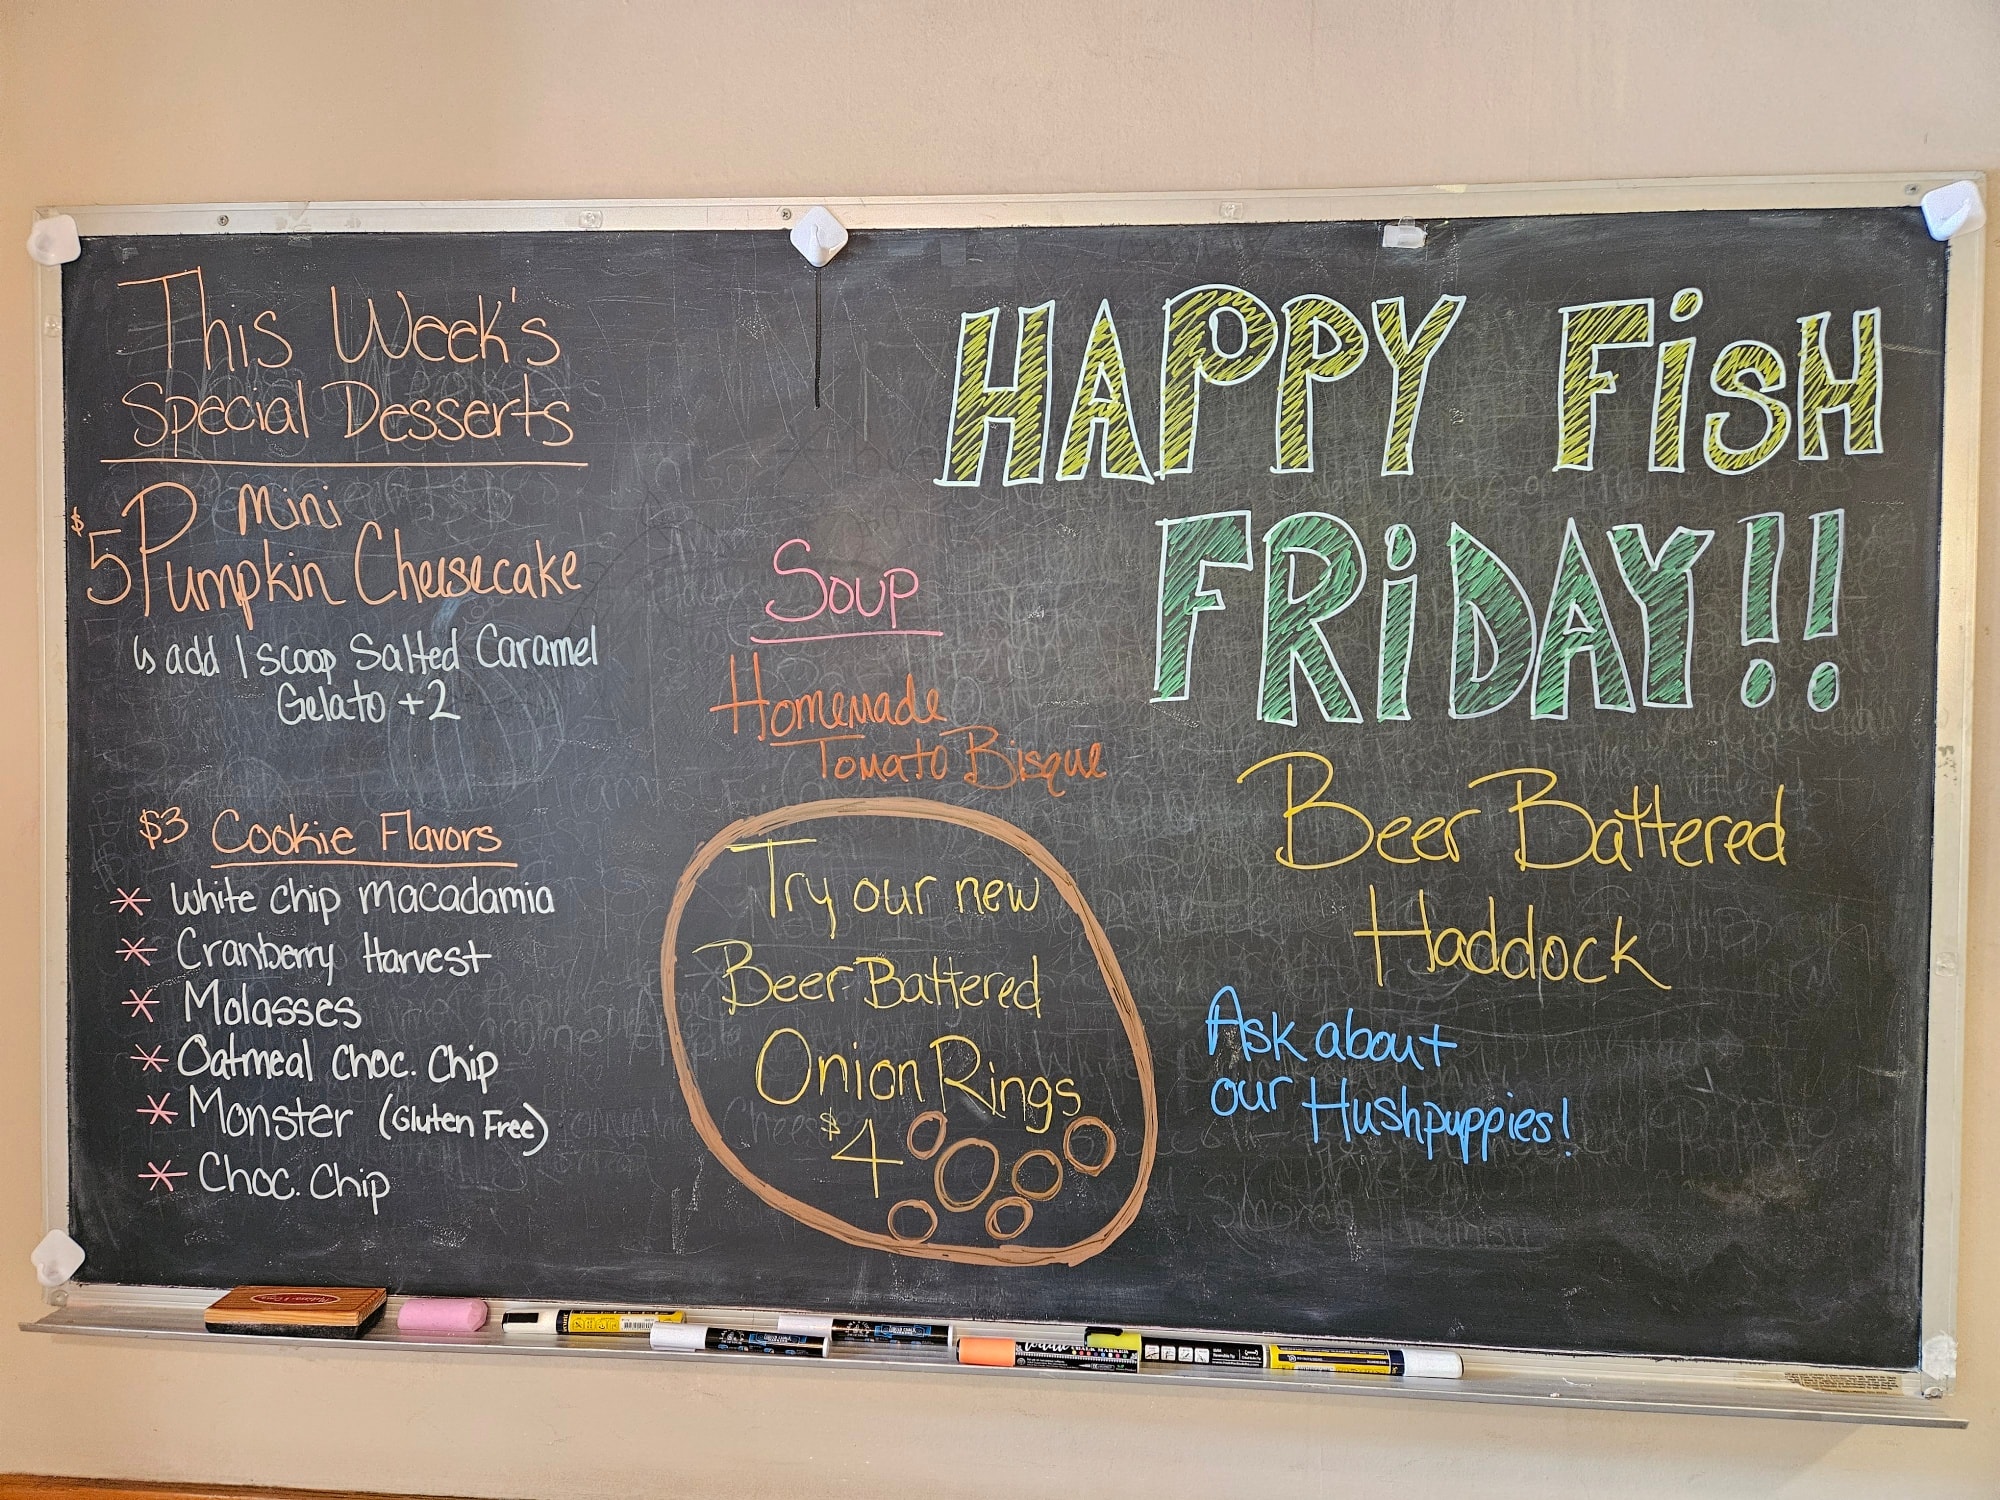 This Week's
Special Desserts
$5 Mini
Pumpkin Cheesecake
↳ add 1 scoop Salted Caramel
Gelato +2
$3 Cookie Flavors
* White Chip Macadamia
* Cranberry Harvest
* Molasses
* Oatmeal Choc. Chip
* Monster (Gluten Free)
* Choc. Chip
Soup
Homemade
Tomato Bisque
Try our new
Beer Battered
Onion Rings
$4
HAPPY FiSH
FRiDAY!!
Beer Battered
Haddock
Ask about
our Hushpuppies!
CHALK MARKER